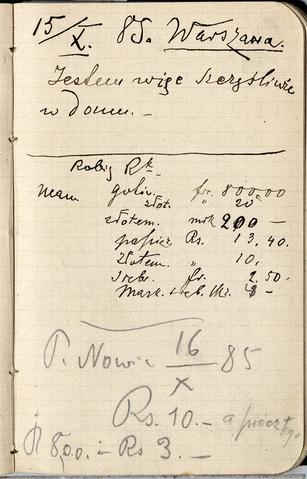 15/X. 85. Warszawa.
Jestem więc szczęśliwie
w domu. –
Robię Rk
Mam gotów. fr. 800,00
złot. " 20
złotem. mrk 200 –
papier. Rs. 13,40.
złotem " 10,
srebr. fr. 2.50.
Mark. sreb. Mk. –
P. Nowic 16/X 85
Rs. 10.– a prócz tego
R 800. i Rs 3.–